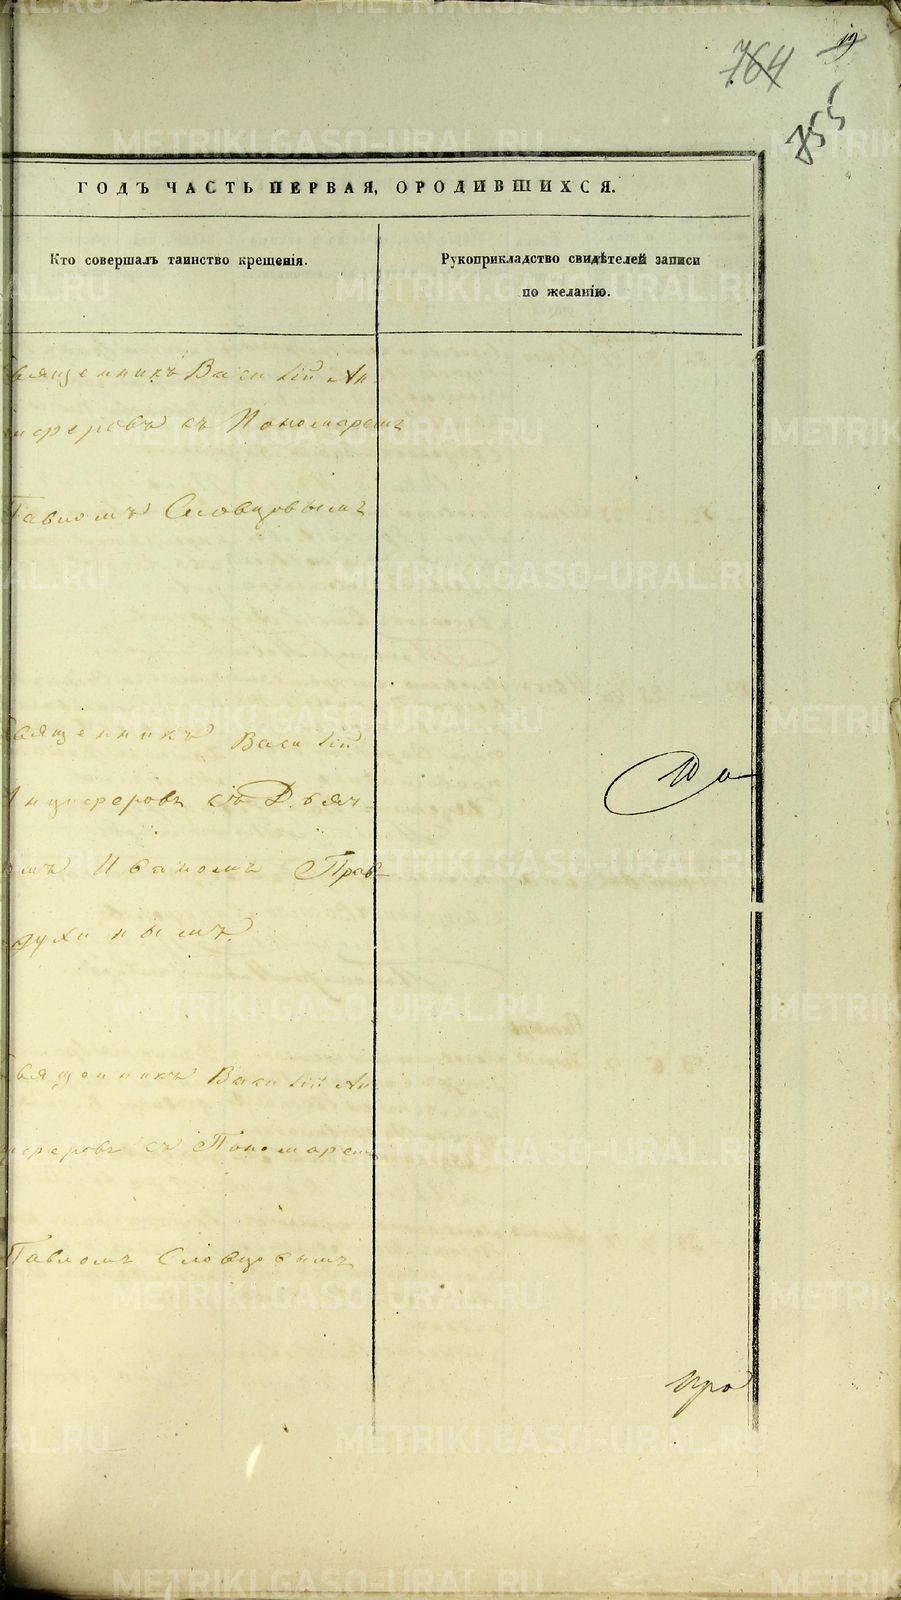 764 19
755
ГОДЪ ЧАСТЬ ПЕРВАЯ, О РОДИВШИХСЯ.
Кто совершалъ таинство крещенія.
Рукоприкладство свидѣтелей записи
по желанію.
Священникъ Василій Ан
циферовъ съ Пономаремъ
Павломъ Словцовымъ
Священникъ Василій
Анциферовъ съ Дьяч
комъ Иваномъ Прав
духинымъ
Священникъ Василій Ан
циферовъ съ Пономаремъ
Павломъ Словцовымъ
METRIKI.GASO-URAL.RU